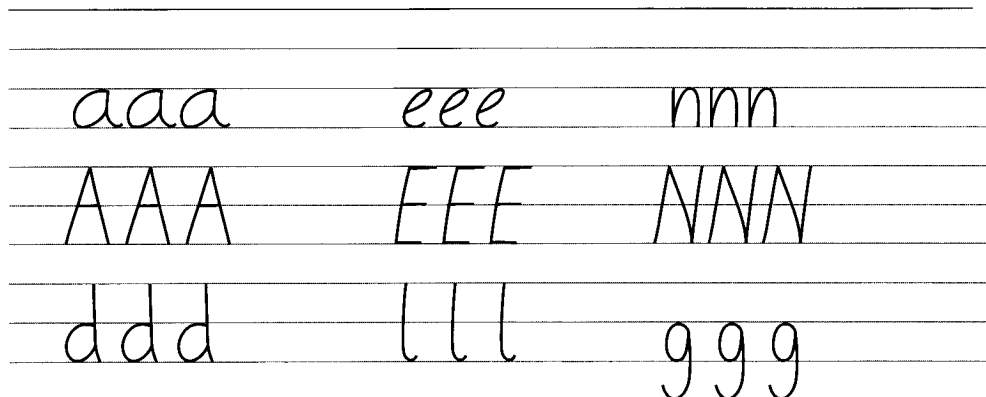 aaa eee nnn
AAA EEE NNN
ddd lll ggg